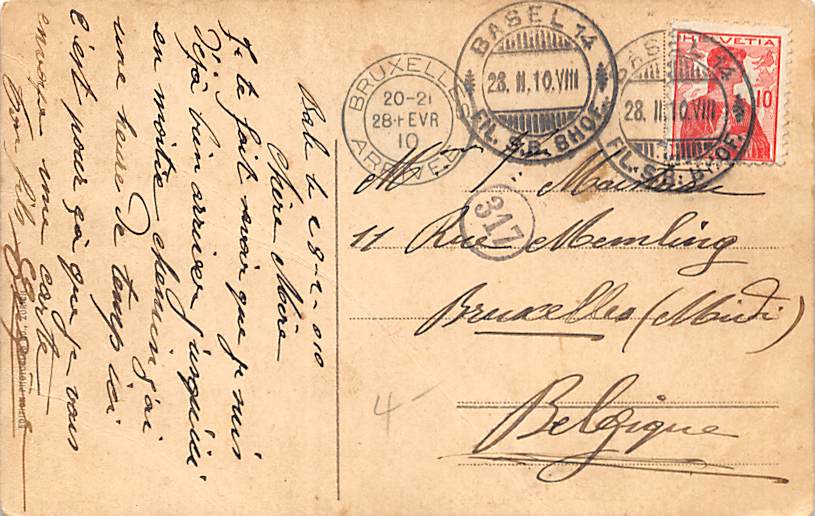 Bale le 28-2-010
Chère Mère
Je te fait savoir que je suis
Déjà bien arriver jusqu'ici
en moitié chemin j'ai
une heure de temp ici
c'est pour ça que je vous
envoye une carte
Ton fils
BRUXELLES
20-21
28 FEVR
10
ARRIVEE
BASEL 14
28. II. 10. VIII
FIL. S.B. BHOF.
BASEL 14
28. II. 10. VIII
FIL. S.B. BHOF.
HELVETIA
10
317
11 Rue Memling
Bruxelles (Midi)
Belgique
4-